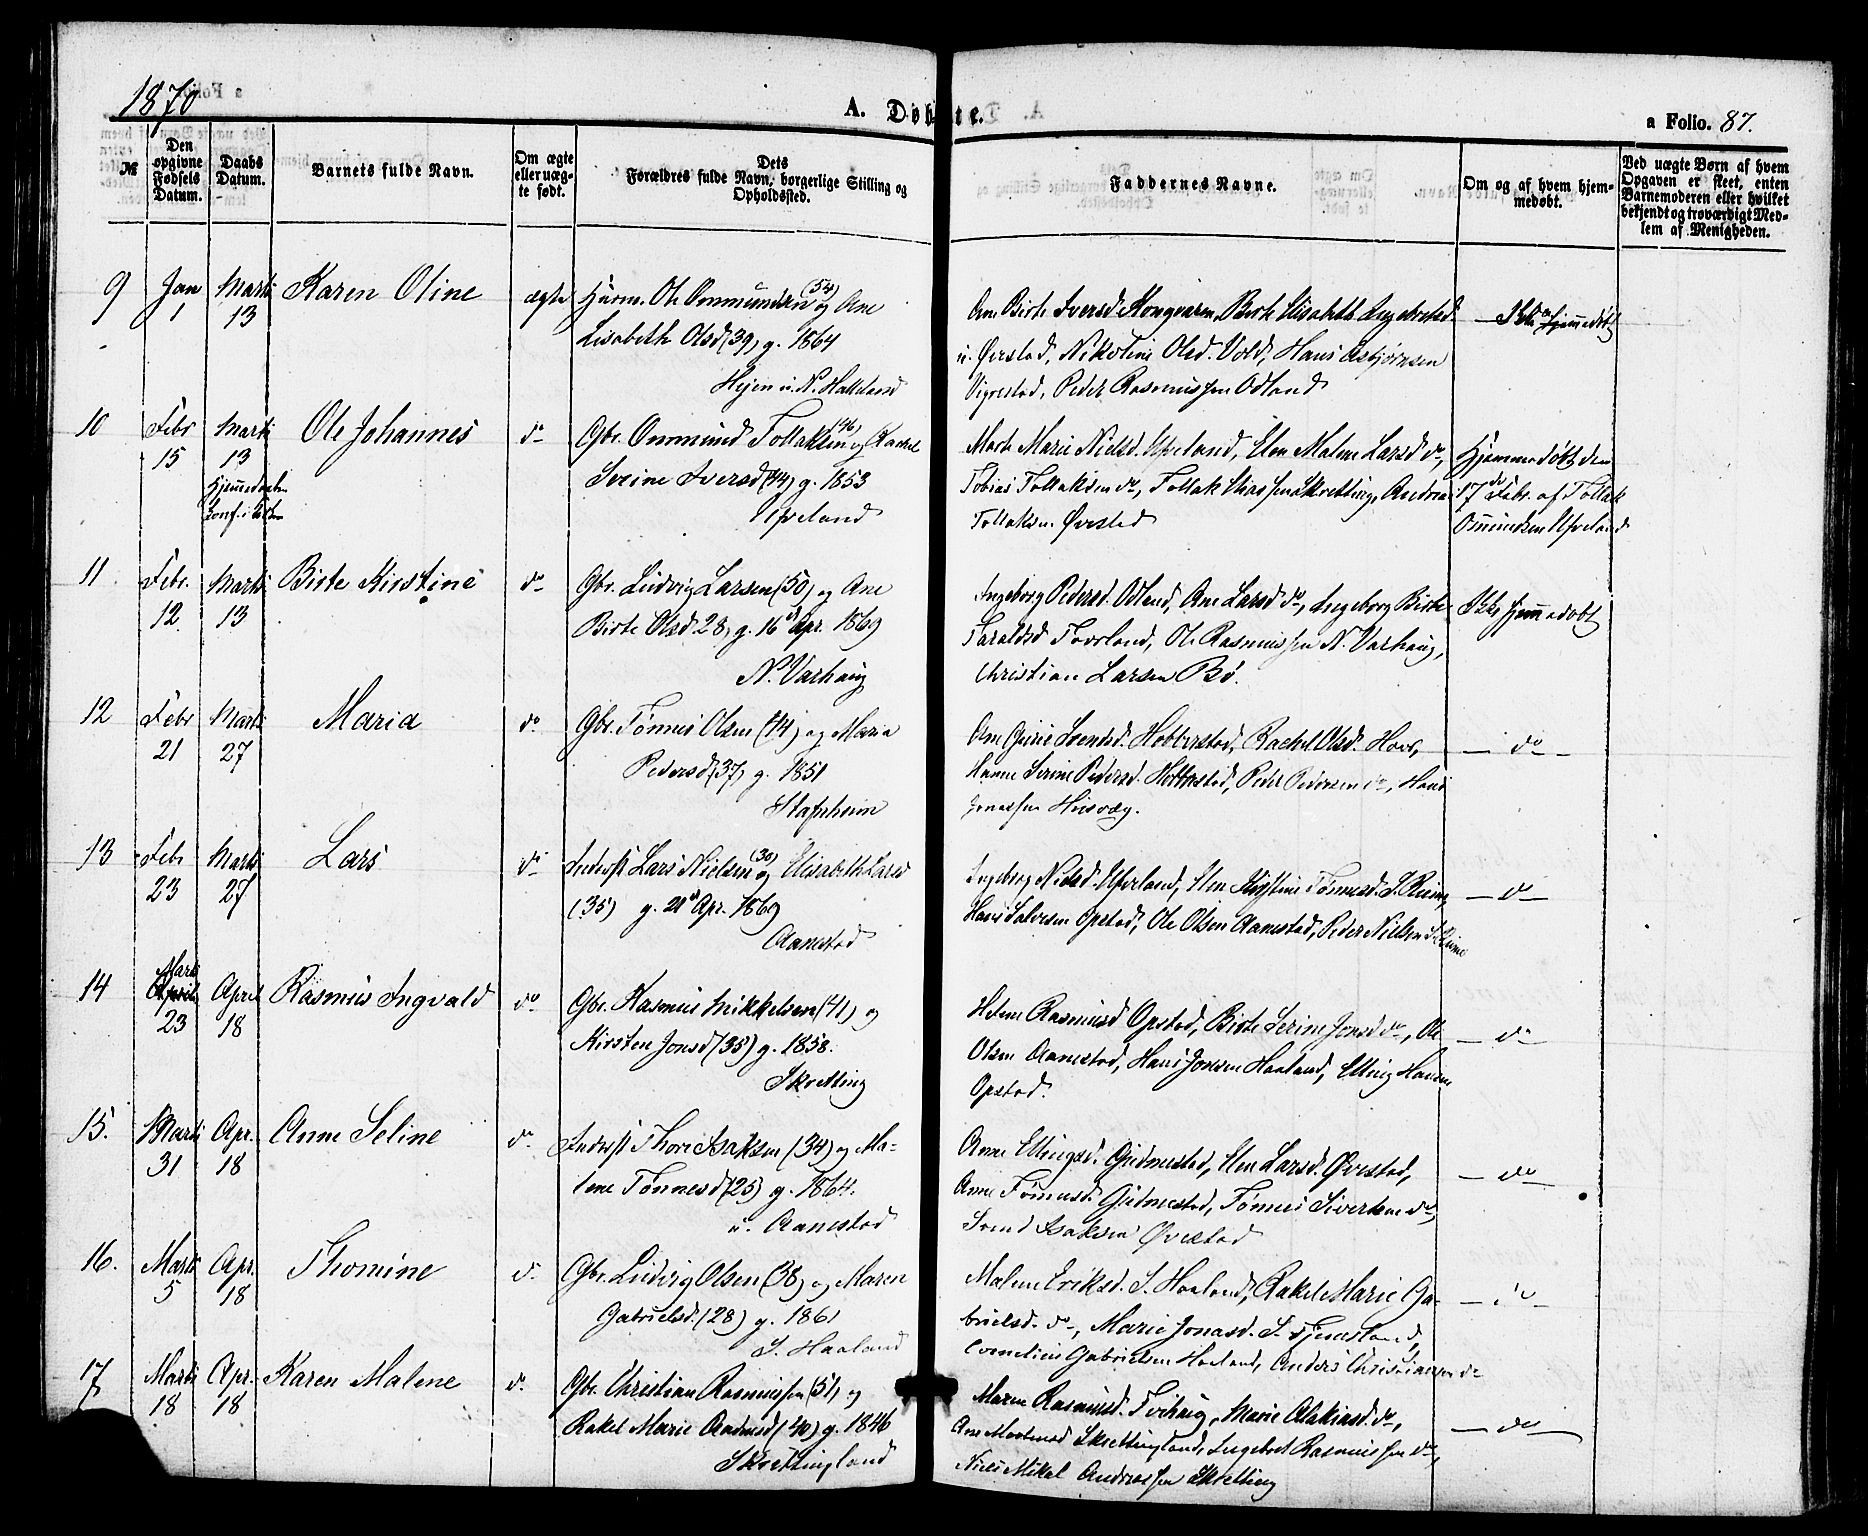 1870
A. Døbte.
a Folio. 87.
№
Den opgivne Fødsels Datum.
Daabs Datum.
Barnets fulde Navn.
Om ægte eller uægte født.
Dets Forældres fulde Navn, borgerlige Stilling og Opholdssted.
Faddernes Navne.
Om og af hvem hjemmedøbt.
Ved uægte Børn af hvem Opgaven er skeet, enten Barnemoderen eller hvilket bekjendt og troværdigt Medlem af Menigheden.
9 Jan 1 Marts 13 Karen Oline ægte
Huusm. Ole Ommundsen (54) og Ane
Lisabeth Olsd (39) g. 1864
Ane Birte Iversd Kongvarn, Berte Elisabeth Ingebretsd
u. Øvrstad, Nikoline Olsd. Vold, Hans Asbjørnsen
Vigrestad, Peder Rasmussen Odland
Ikke hjemmedøbt
10 Febr 15 Marts 13 Ole Johannes do
Gbr. Ommund Tollaksen (46) og Rachel
Serine Iversd (44) g. 1853
Ueland
Marte Marie Nielsd. Ueland, Elen Malene Larsd do,
Tobias Tollaksen do, Tollak Eliassen Skretting, Andreas
Tollaksen Øvrstad
Hjemmedøbt den
17de Febr. af Tollak
Ommundsen Ueland
11. Febr. 12 Marts 13 Birte Kirstine do
Gbr. Ludvig Larsen (50) og Ane
Birte Olsd 28, g. 16de Apr. 1869
N. Varhaug
Ingeborg Pedersd. Odland, Ane Larsd do, Ingeborg Birte
Taraldsd Tovland, Ole Rasmussen N. Varhaug,
Christian Larsen Bø.
Ikke hjemmedøbt
12 Febr 21 Marts 27 Maria do
Gbr. Tønnes Olsen (44) og Maria
Pedersd (37) g. 1851
Stafnheim
Ane Gurie Svendsd. Hobberstad, Rachel Olsd. Hoor,
Hanne Serine Pedersd. Hobberstad, Peder Pedersen do, Hans
Jonassen Husvæg.
do
13 Febr 23 Marts 27 Lars do
Inderst Lars Nielsen (30) og Elisabeth Larsd
(35) g. 21de Apr. 1869
Aanestad
Ingeborg Nielsd. Ueland, Elen Kirstine Tønnesd. S. Reime,
Hans Salvesen Opstad, Ole Olsen Aanestad, Peder Nielsen S. Reime
do
14 Marts 23 April 18 Rasmus Ingvald do
Gbr. Rasmus Mikkelsen (41) og
Kirsten Jonsd (35) g. 1858.
Skretting
Helene Rasmusd Opstad, Birte Serine Jonsd do, Ole
Olsen Aanestad, Hans Jonsen Haaland, Elling Hansen
Opstad.
do
15. Marts 31 Apr. 18 Anne Seline do
Inderst Thore Isaksen (34) og Ma-
lene Tønnesd (25) g. 1864.
u. Aanestad
Anne Ellingsd. Gudmestad, Elen Larsd. Øvrstad,
Anne Tønnesd. Gudmestad, Tønnes Sivertsen do,
Svend Isaksen Øvrstad
do
16. Marts 5 Apr. 18 Thomine do
Gbr. Ludvig Olsen (38) og Maren
Gabrielsd. (28) g. 1861
S. Haaland
Malene Eriksd. S. Haaland, Rakel Marie Ga-
brielsd. do, Marie Jonasd.
Cornelius Gabrielsen Haaland, Anders Christiansen do
do
17 Marts 18 Apr. 18 Karen Malene do
Gbr. Christian Rasmussen (51) og
Rakel Marie (40) g. 1846
Skrettingland
Maren Rasmusd. Tvihaug, Marie do,
Ane Skrettingland, Ingebret Rasmussen do,
Niels Mikal Andreassen Skretting
do